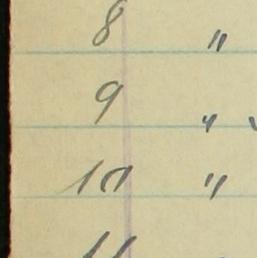 8 "
9 "
10 "
11